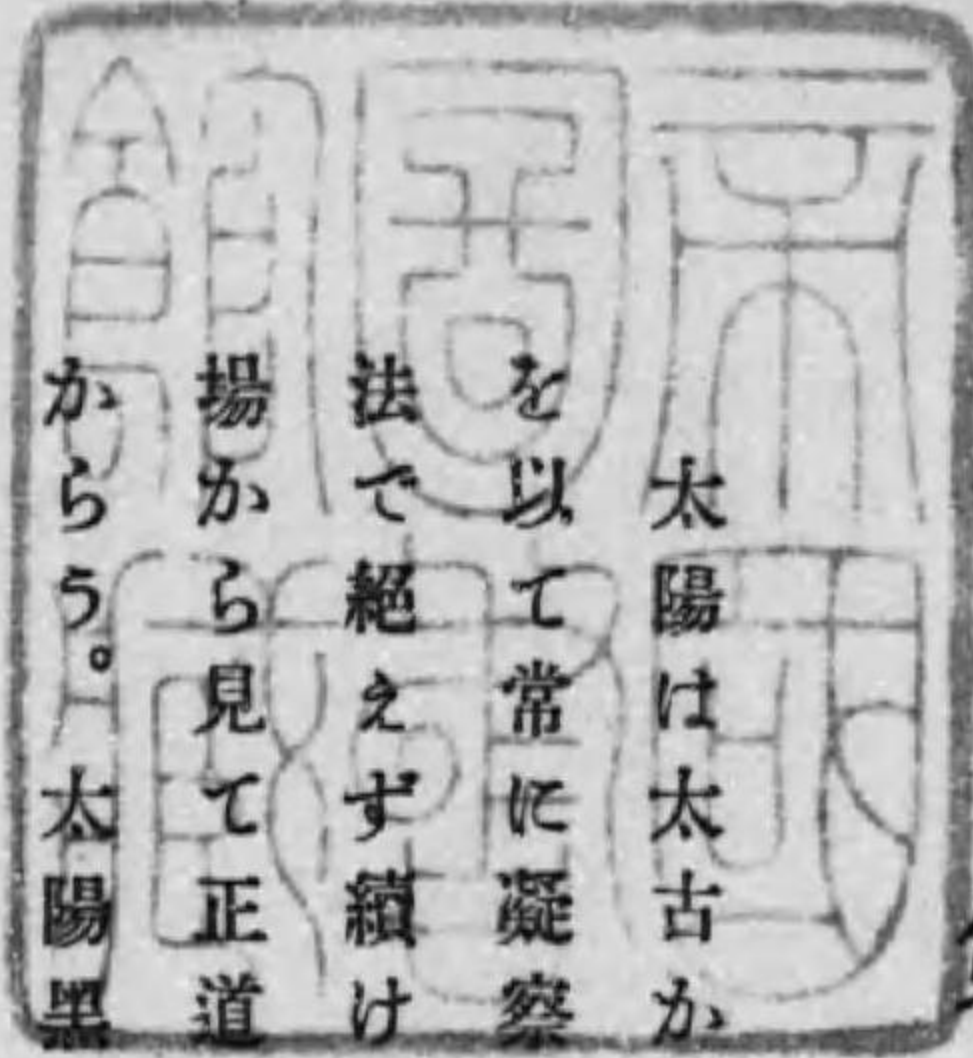 太陽は太古か
を以て常に凝察
法で絶えず續け
場から見て正道
からう。太陽黑